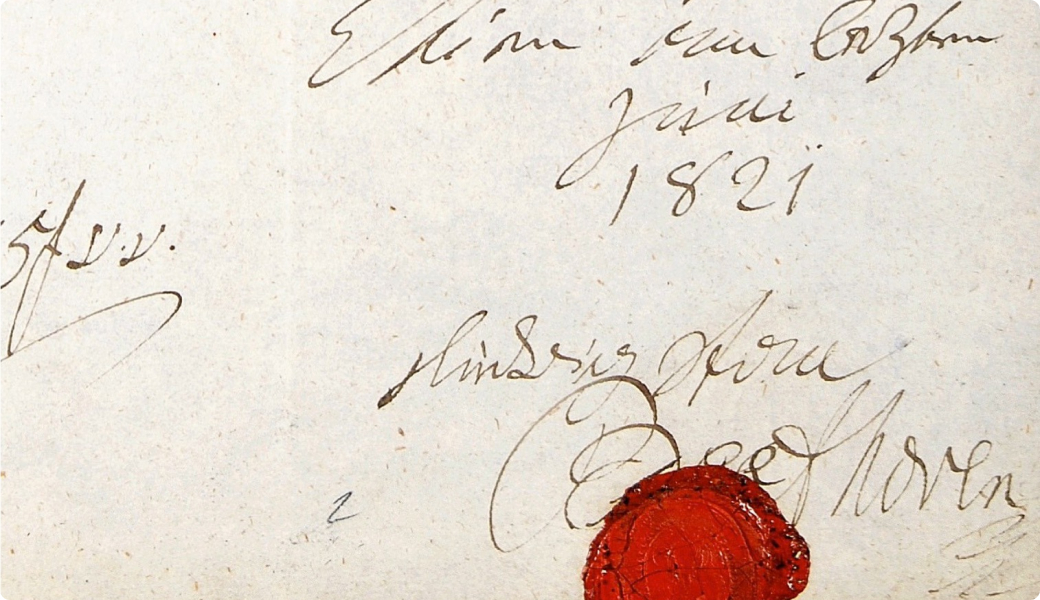 Wien am letzten
Juni
1821
Ludwig van
Beethoven